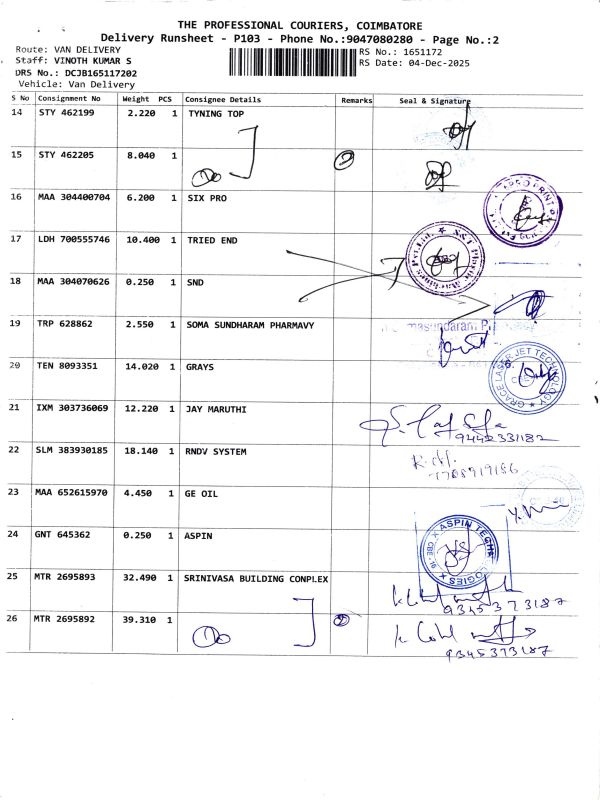 THE PROFESSIONAL COURIERS, COIMBATORE
Delivery Runsheet - P103 - Phone No.:9047080280 - Page No.:2
Route: VAN DELIVERY
Staff: VINOTH KUMAR S
DRS No.: DCJB165117202
Vehicle: Van Delivery
RS No.: 1651172
RS Date: 04-Dec-2025
S No Consignment No Weight PCS Consignee Details Remarks Seal & Signature
14 STY 462199 2.220 1 TYNING TOP
15 STY 462205 8.040 1
16 MAA 304400704 6.200 1 SIX PRO
17 LDH 700555746 10.400 1 TRIED END
18 MAA 304070626 0.250 1 SND
19 TRP 628862 2.550 1 SOMA SUNDHARAM PHARMAVY
20 TEN 8093351 14.020 1 GRAYS
GRACE LASER JET TECHNOLOGY
21 IXM 303736069 12.220 1 JAY MARUTHI
9442331182
22 SLM 383930185 18.140 1 RNDV SYSTEM
23 MAA 652615970 4.450 1 GE OIL
24 GNT 645362 0.250 1 ASPIN
ASPIN TECHNOLOGIES
25 MTR 2695893 32.490 1 SRINIVASA BUILDING CONPLEX
9345373187
26 MTR 2695892 39.310 1
9345373187